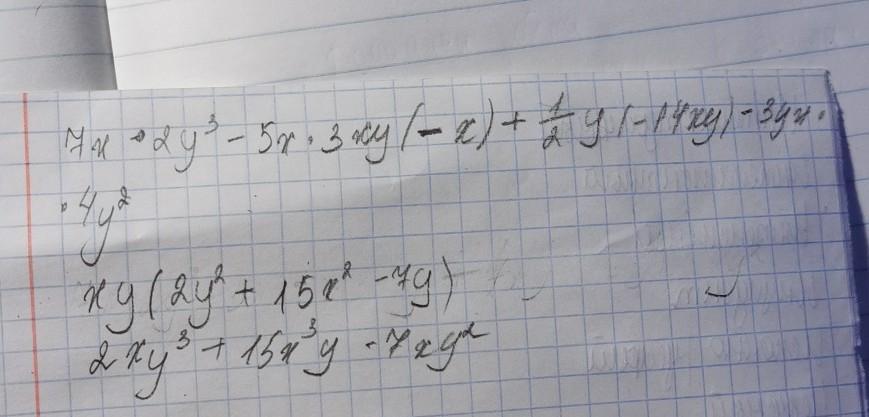 7x · 2y³ - 5x · 3xy(-x) + 1/2 y(-14xy) - 3yx ·
· 4y²
xy(2y² + 15x² - 7y)
2xy³ + 15x³y - 7xy²